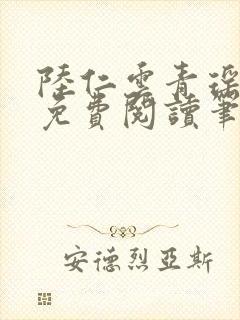 陸仁雲青瑤
免費閱讀筆
安德烈亞斯